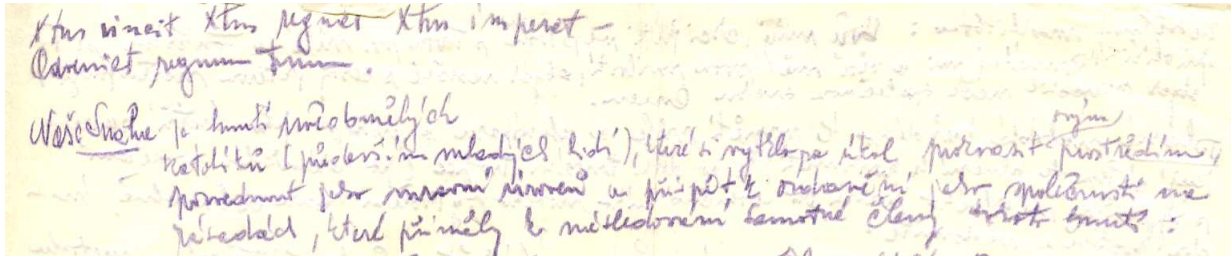 Xtus vincit Xtus regnat Xtus imperat
Adveniat regnum Tuum.
svým
Naše Snaha je hnutí uvědomělých
katolíků (především mladých lidí), které si vytklo za úkol prokvasit prostředím,
pozvednout jeho mravní úroveň a přispět k ozdravění jeho společnosti na
zásadách, které přiměly k následování samotné členy hnutí: